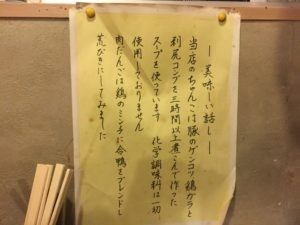 ― 美味しい話し ―
当店のちゃんこは豚のゲンコツ鶏ガラと
利尻コンブを三時間以上煮こんで作った
スープを使っています 化学調味料は一切
使用しておりません
肉だんごは鶏のミンチに合鴨をブレンドし
荒びきにしてみました